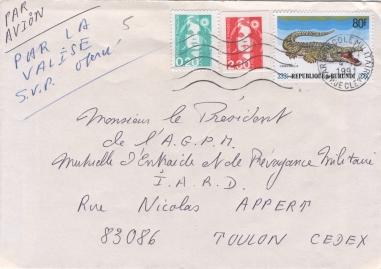 PAR
AVION
PAR LA
VALISE
S.V.P.
5
0,20
2,30
80F
REPUBLIQUE DU BURUNDI
1991
Monsieur le Président
de l'A.G.P.M.
Mutuelle d'Entraide et de Prévoyance Militaire
I.A.R.D.
Rue Nicolas APPERT
83086 TOULON CEDEX